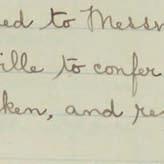 ed to Messr
ille to confer
ken, and re